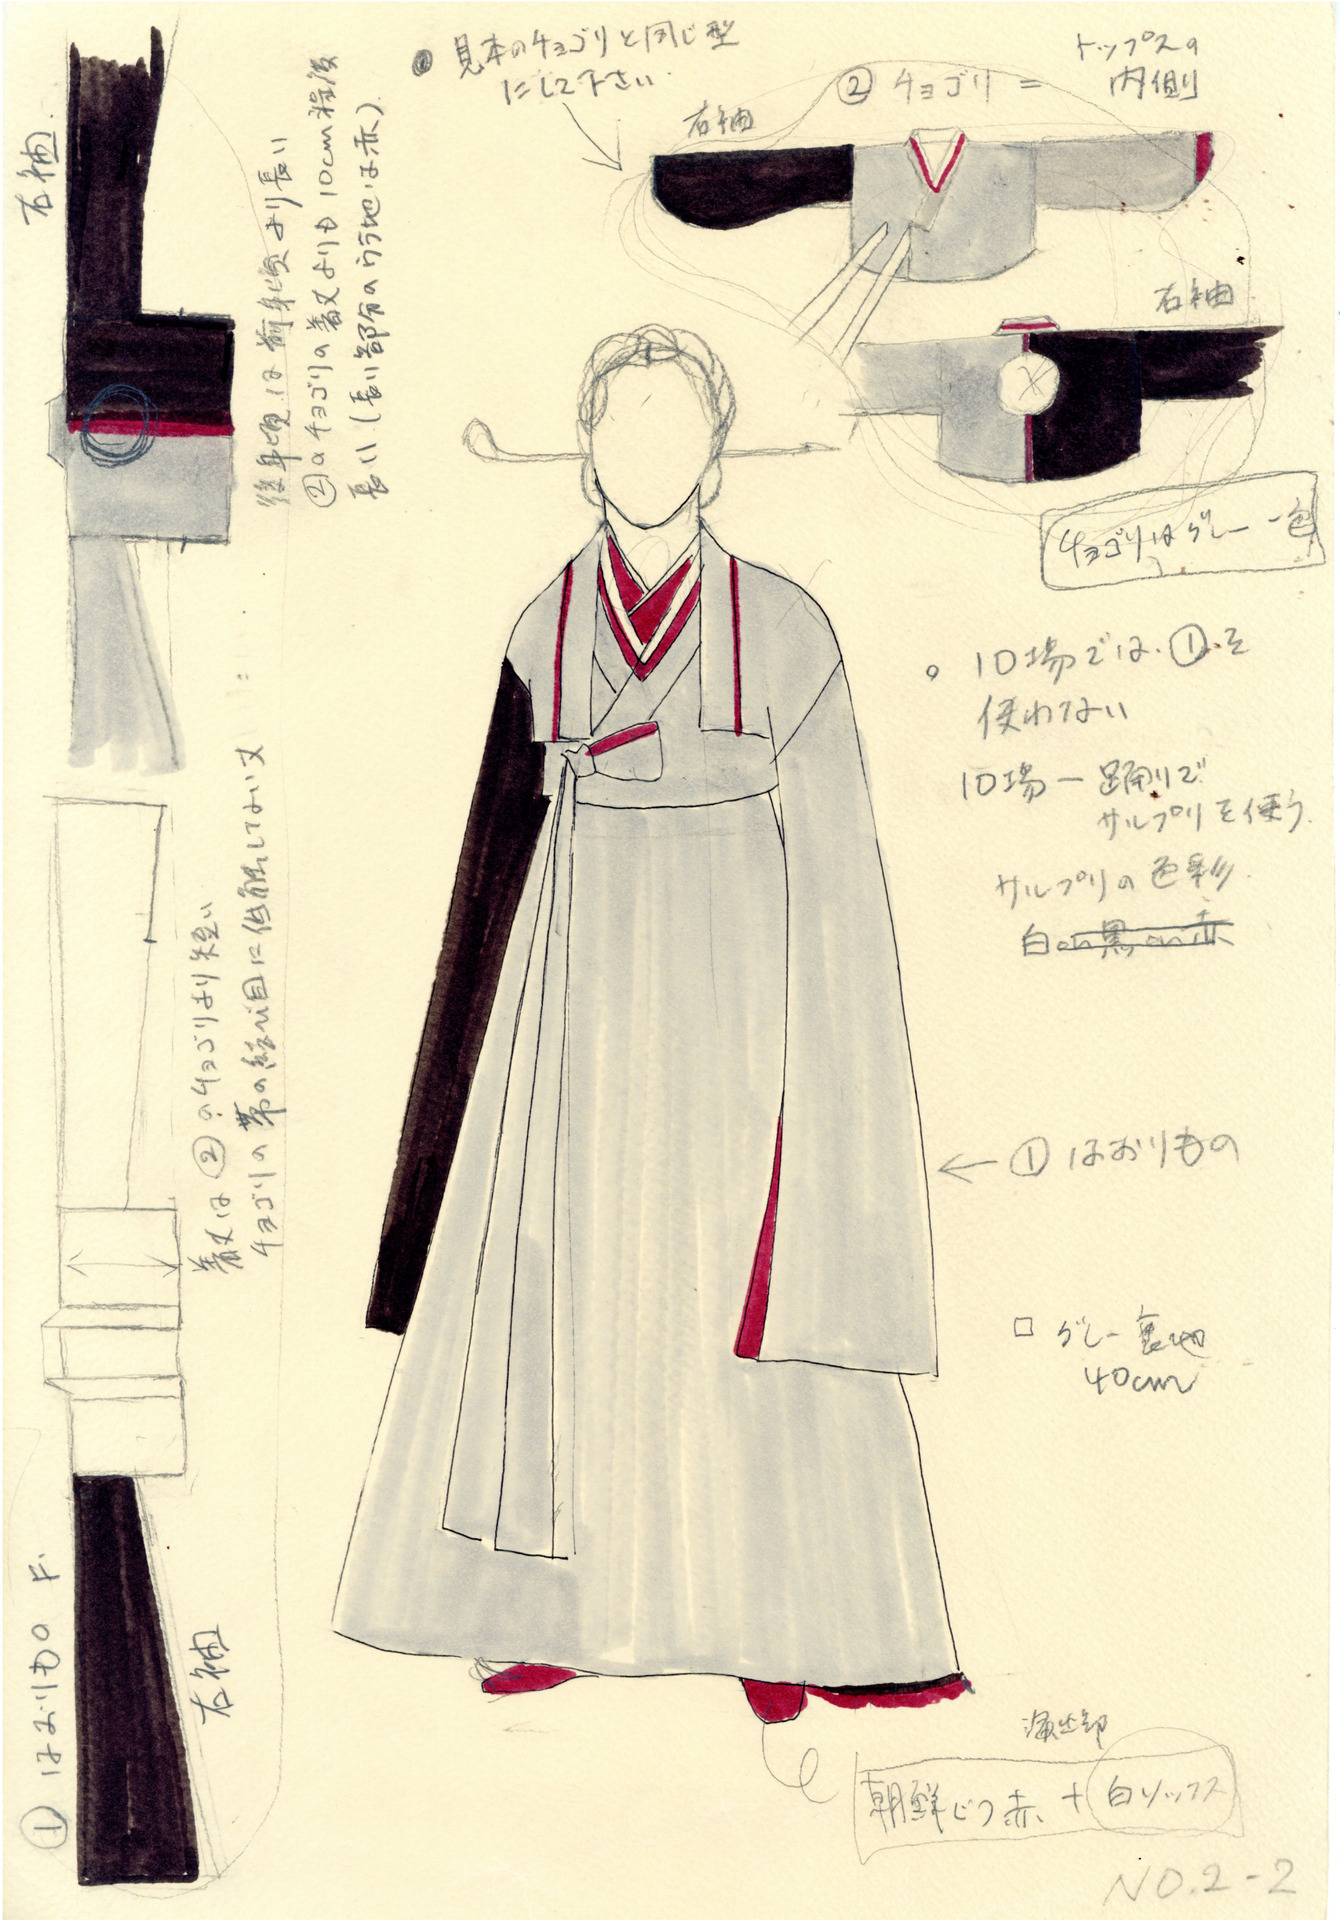 ● 見本のチョゴリと同じ型
にして下さい
② チョゴリ =
トップスの
内側
右袖
右袖
チョゴリはグレー一色
右袖
後身頃は前身頃より長い
②のチョゴリの着丈よりも10cm程後
長い(長い部分のウラ地は赤)
。10場では①を
使わない
10場ー踊りで
サルプリを使う.
サルプリの色彩.
白or黒or赤
着丈は②のチョゴリより短い
チョゴリの帯の結び目に低触しない丈
← ① はおりもの
□ グレー裏地
40cm
① はおりもの F.
右袖
演出部
朝鮮じつ赤 + 白ソックス
NO.2-2